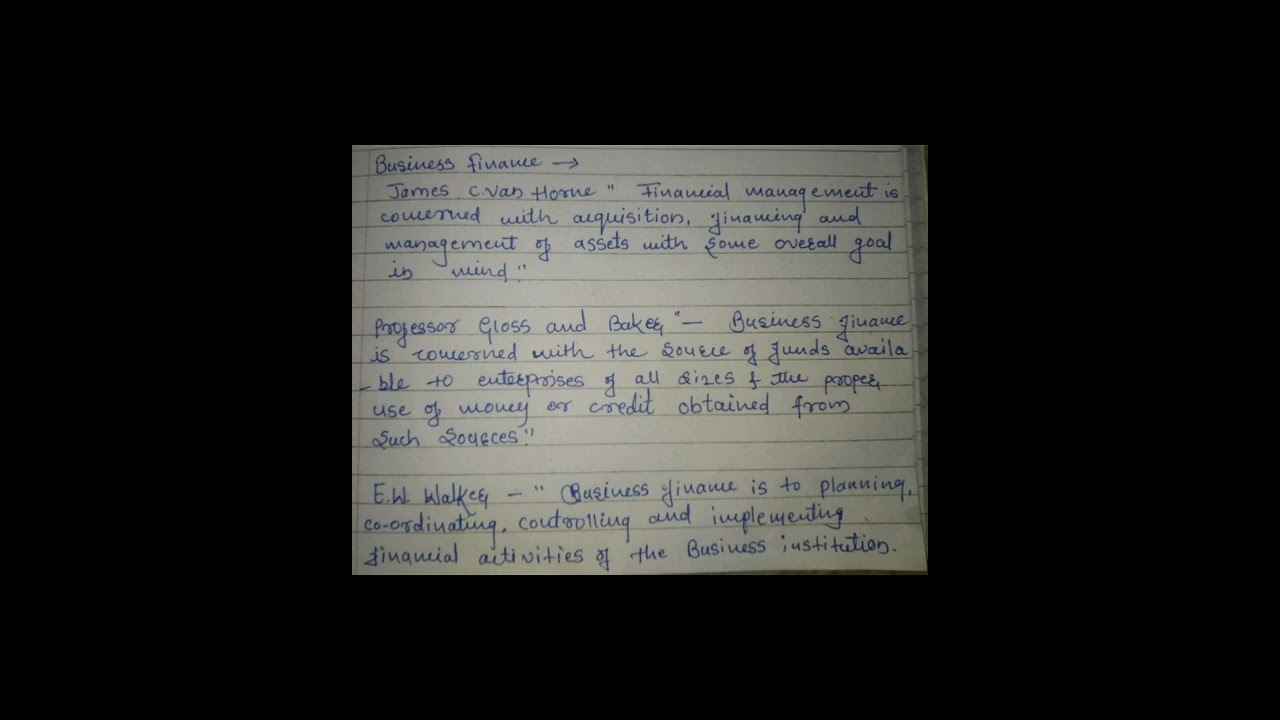 Business finance →
James C. Van Horne " Financial management is
concerned with acquisition, financing and
management of assets with some overall goal
in mind"
Professor Gloss and Baker "— Business finance
is concerned with the source of funds availa
-ble to enterprises of all sizes & the proper
use of money or credit obtained from
such sources"
E.W. Walker – " Business finance is to planning,
co-ordinating, controlling and implementing
financial activities of the Business institution.